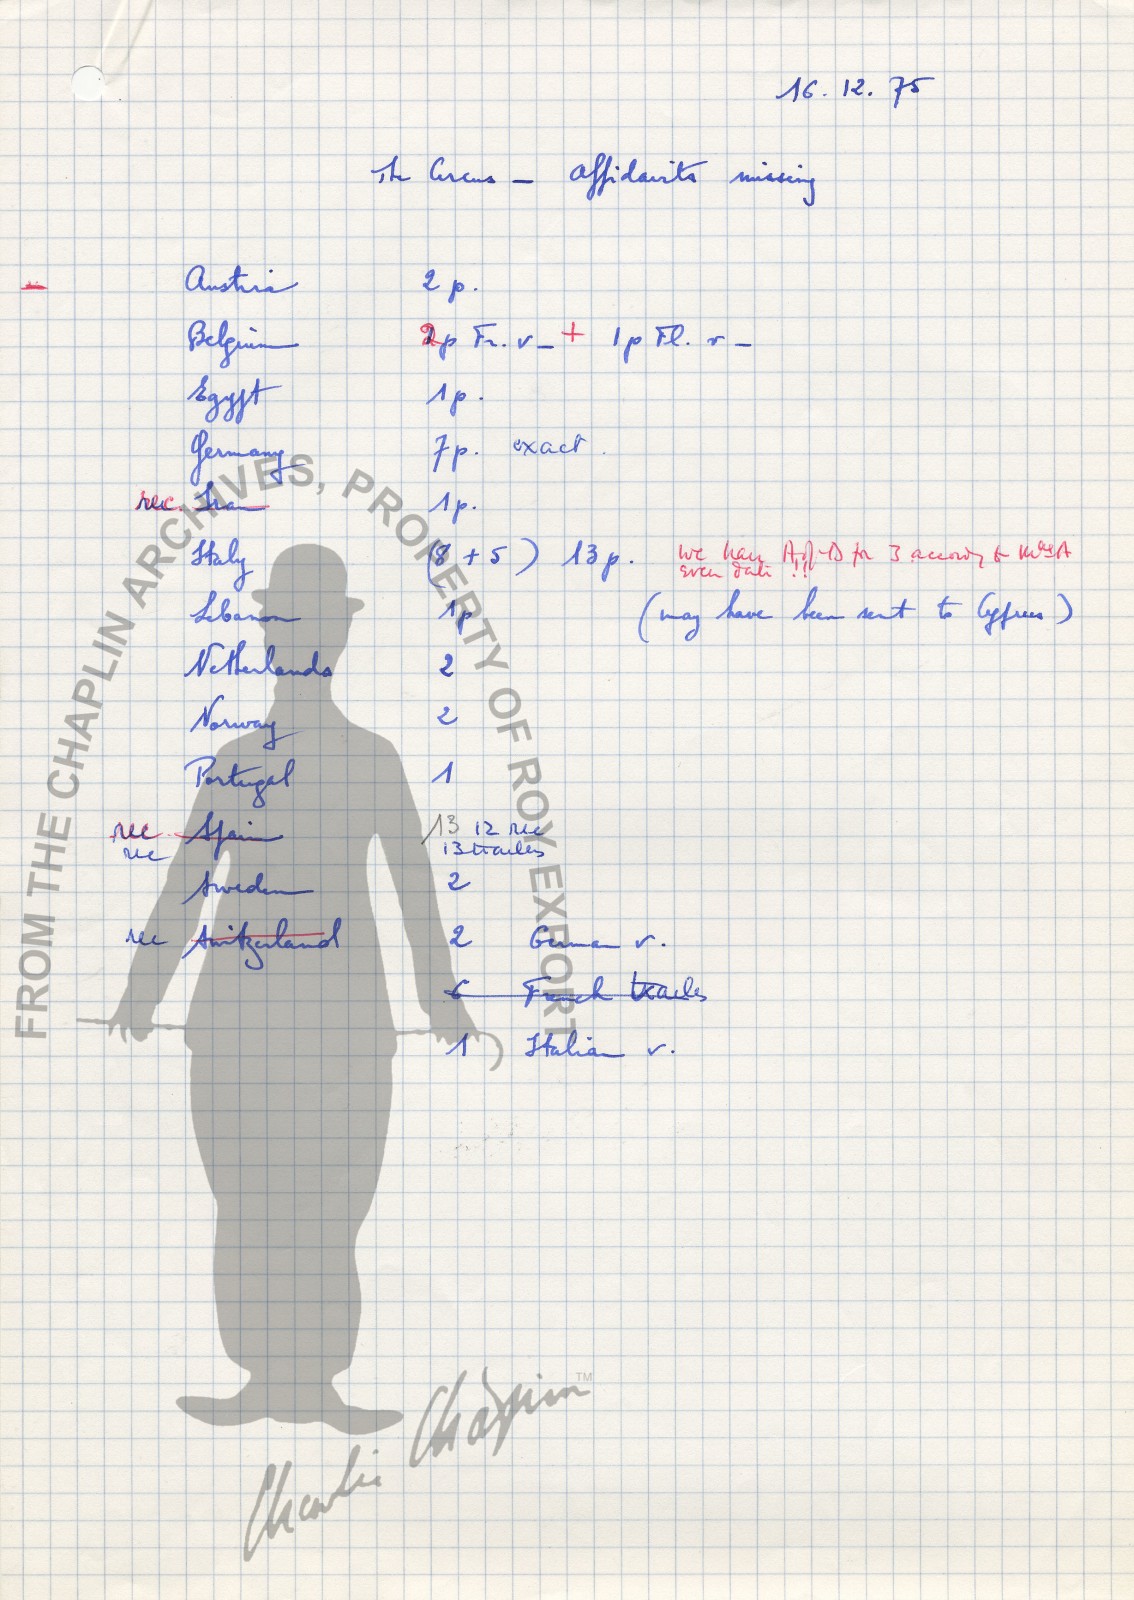 16. 12. 75
The Circus – Affidavits missing
Austria 2 p.
Belgium 2p Fr. v – + 1p Fl. v –
Egypt 1p.
Germany 7p. exact.
rec. Iran 1p.
Italy (8 + 5) 13p. we have A of D for 3 according to
even date !!
Lebanon 1p (may have been sent to Cyprus)
Netherlands 2
Norway 2
Portugal 1
rec. Spain 13 12 rec
rec 13 trailers
Sweden 2
rec Switzerland 2 German v.
6 French trailers
1 Italian v.
FROM THE CHAPLIN ARCHIVES, PROPERTY OF ROY EXPORT
Charlie Chaplin TM